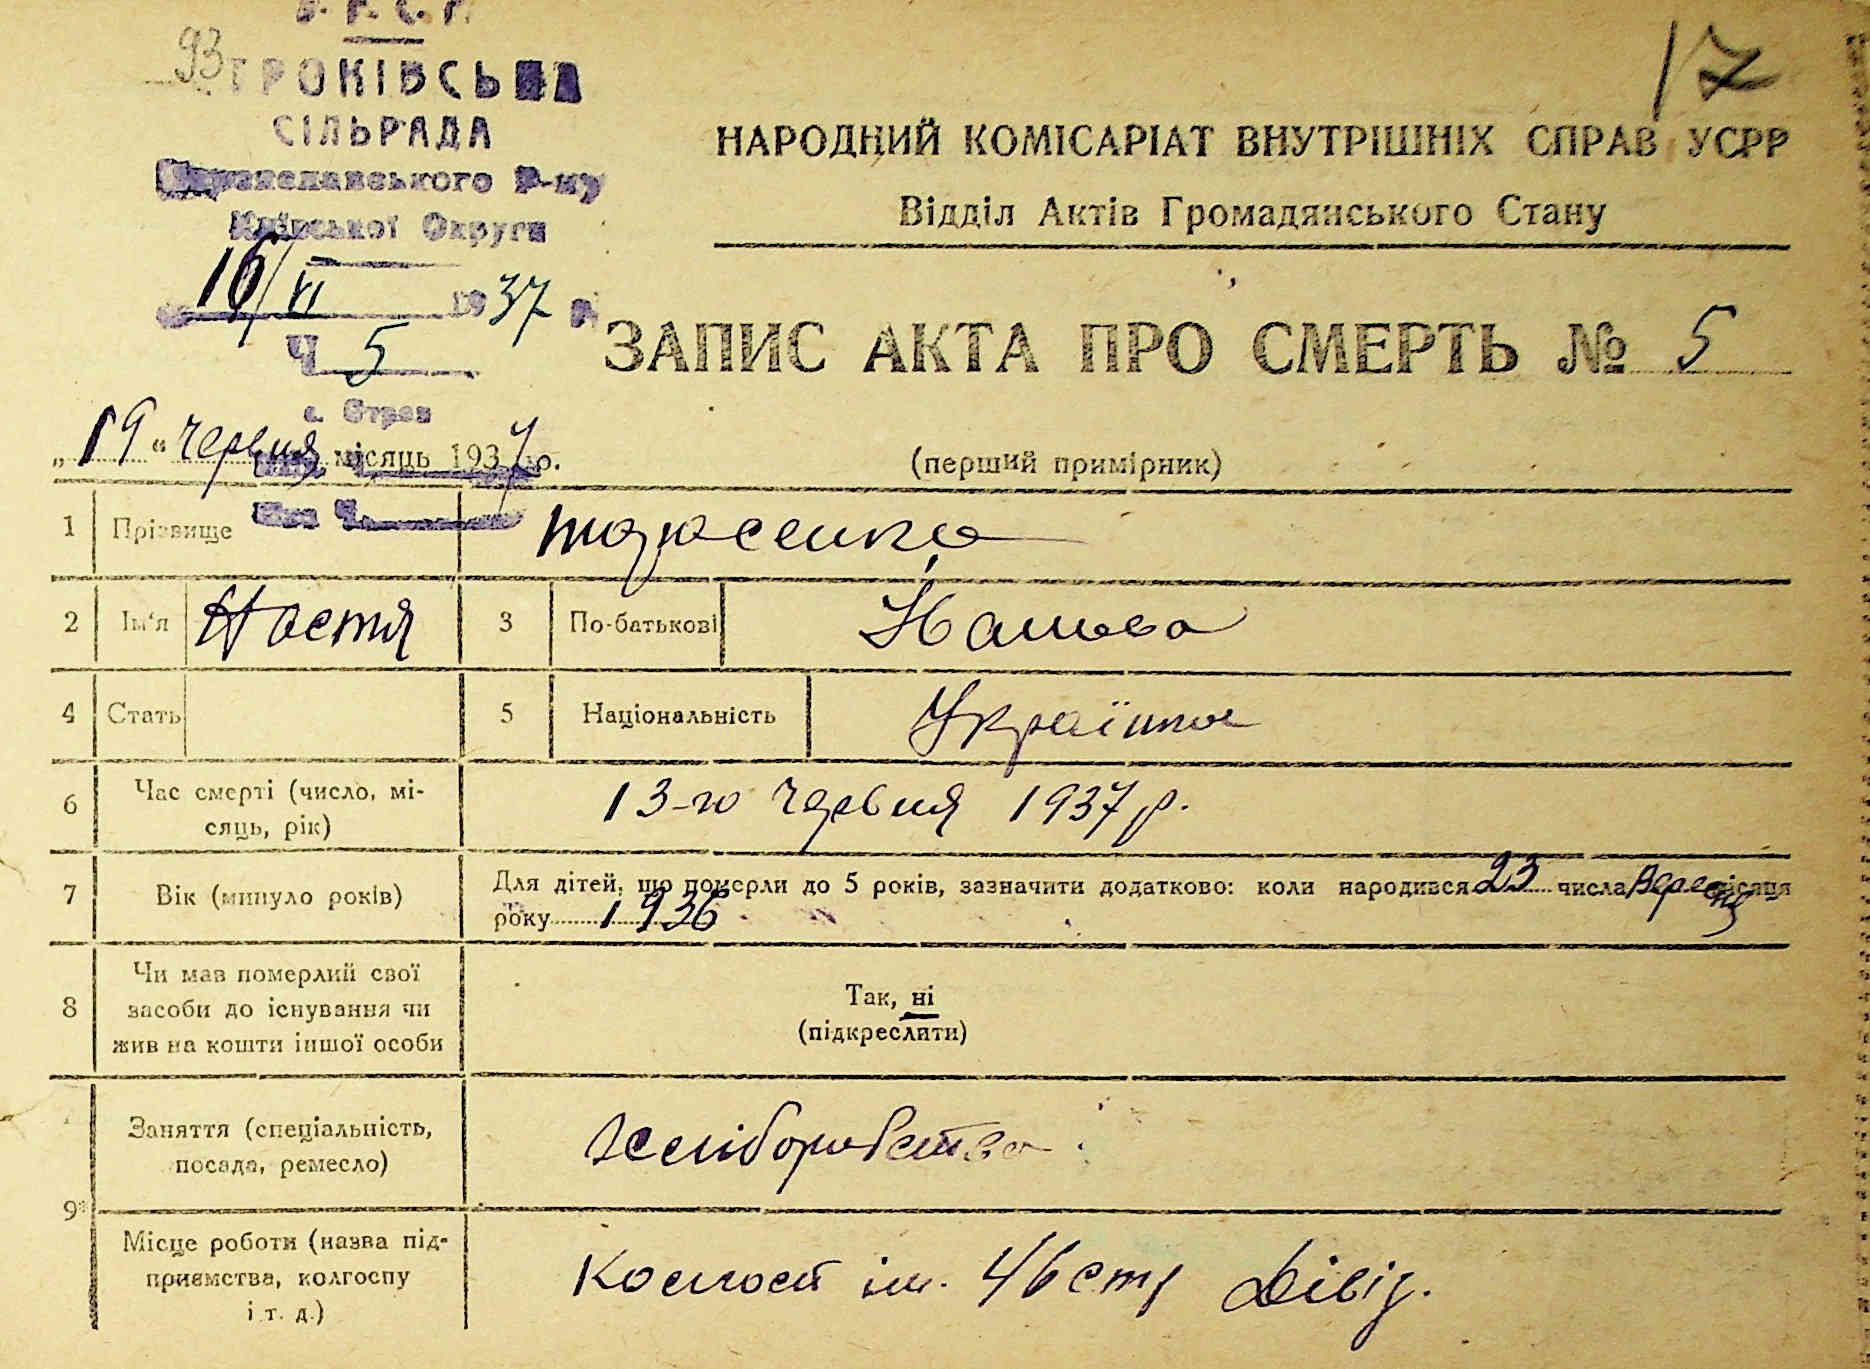 17
93
У. Р. С. Р.
СІЛЬРАДА
Переяславського Р-ну
Київської Округи
16/VI 1937 р.
Ч 5
НАРОДНИЙ КОМІСАРІАТ ВНУТРІШНІХ СПРАВ УСРР
Відділ Актів Громадянського Стану
ЗАПИС АКТА ПРО СМЕРТЬ № 5
„19“ червня місяць 1937 р.
(перший примірник)
1 Прізвище Тарасенко
2 Ім'я Настя 3 По-батькові
4 Стать 5 Національність Українка
6 Час смерті (число, мі-
сяць, рік) 13-го червня 1937 р.
7 Вік (минуло років) Для дітей, що померли до 5 років, зазначити додатково: коли народився 23 числа Вересня місяця
року 1936
8 Чи мав померлий свої
засоби до існування чи
жив на кошти іншої особи
Так, ні
(підкреслити)
9 Заняття (спеціальність,
посада, ремесло) Хліборобство
Місце роботи (назва під-
приємства, колгоспу
і т. д.) Колгосп ім. 46 стр Дівіз.